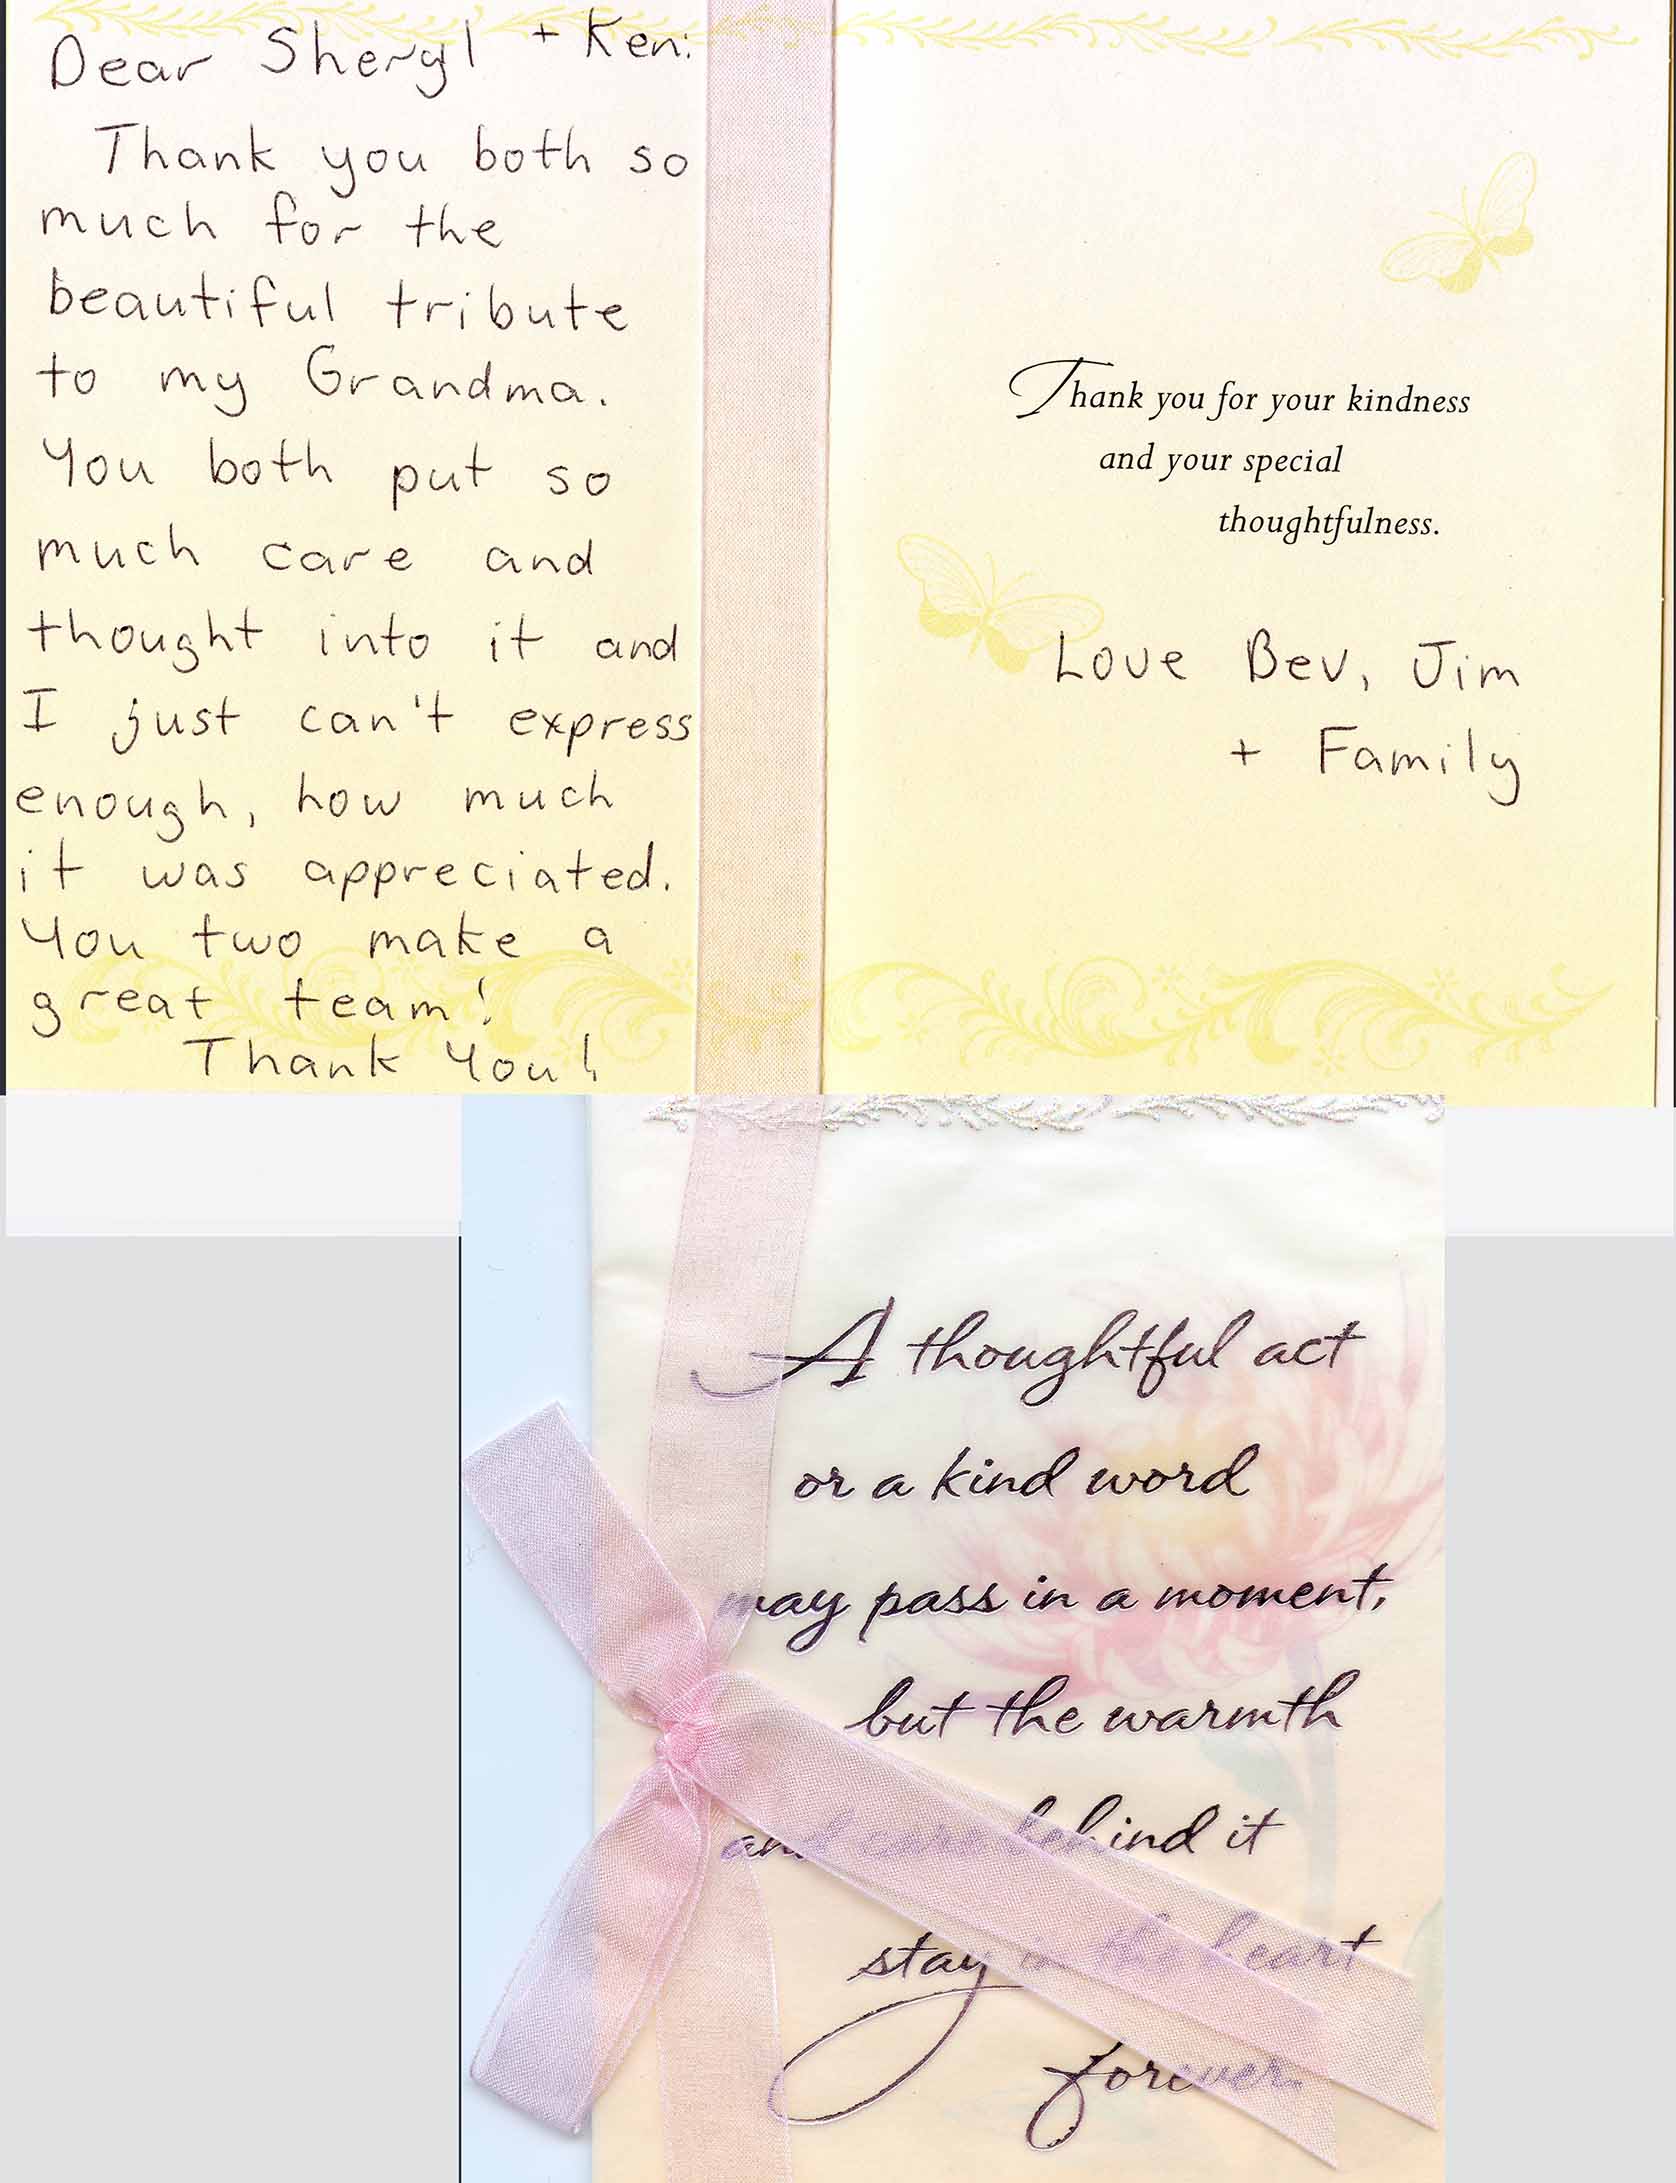 Dear Sheryl + Ken:
Thank you both so
much for the
beautiful tribute
to my Grandma.
You both put so
much care and
thought into it and
I just can't express
enough, how much
it was appreciated.
You two make a
great team!
Thank You!
Thank you for your kindness
and your special
thoughtfulness.
Love Bev, Jim
+ Family
A thoughtful act
or a kind word
may pass in a moment,
but the warmth
and care behind it
stay in the heart
forever.